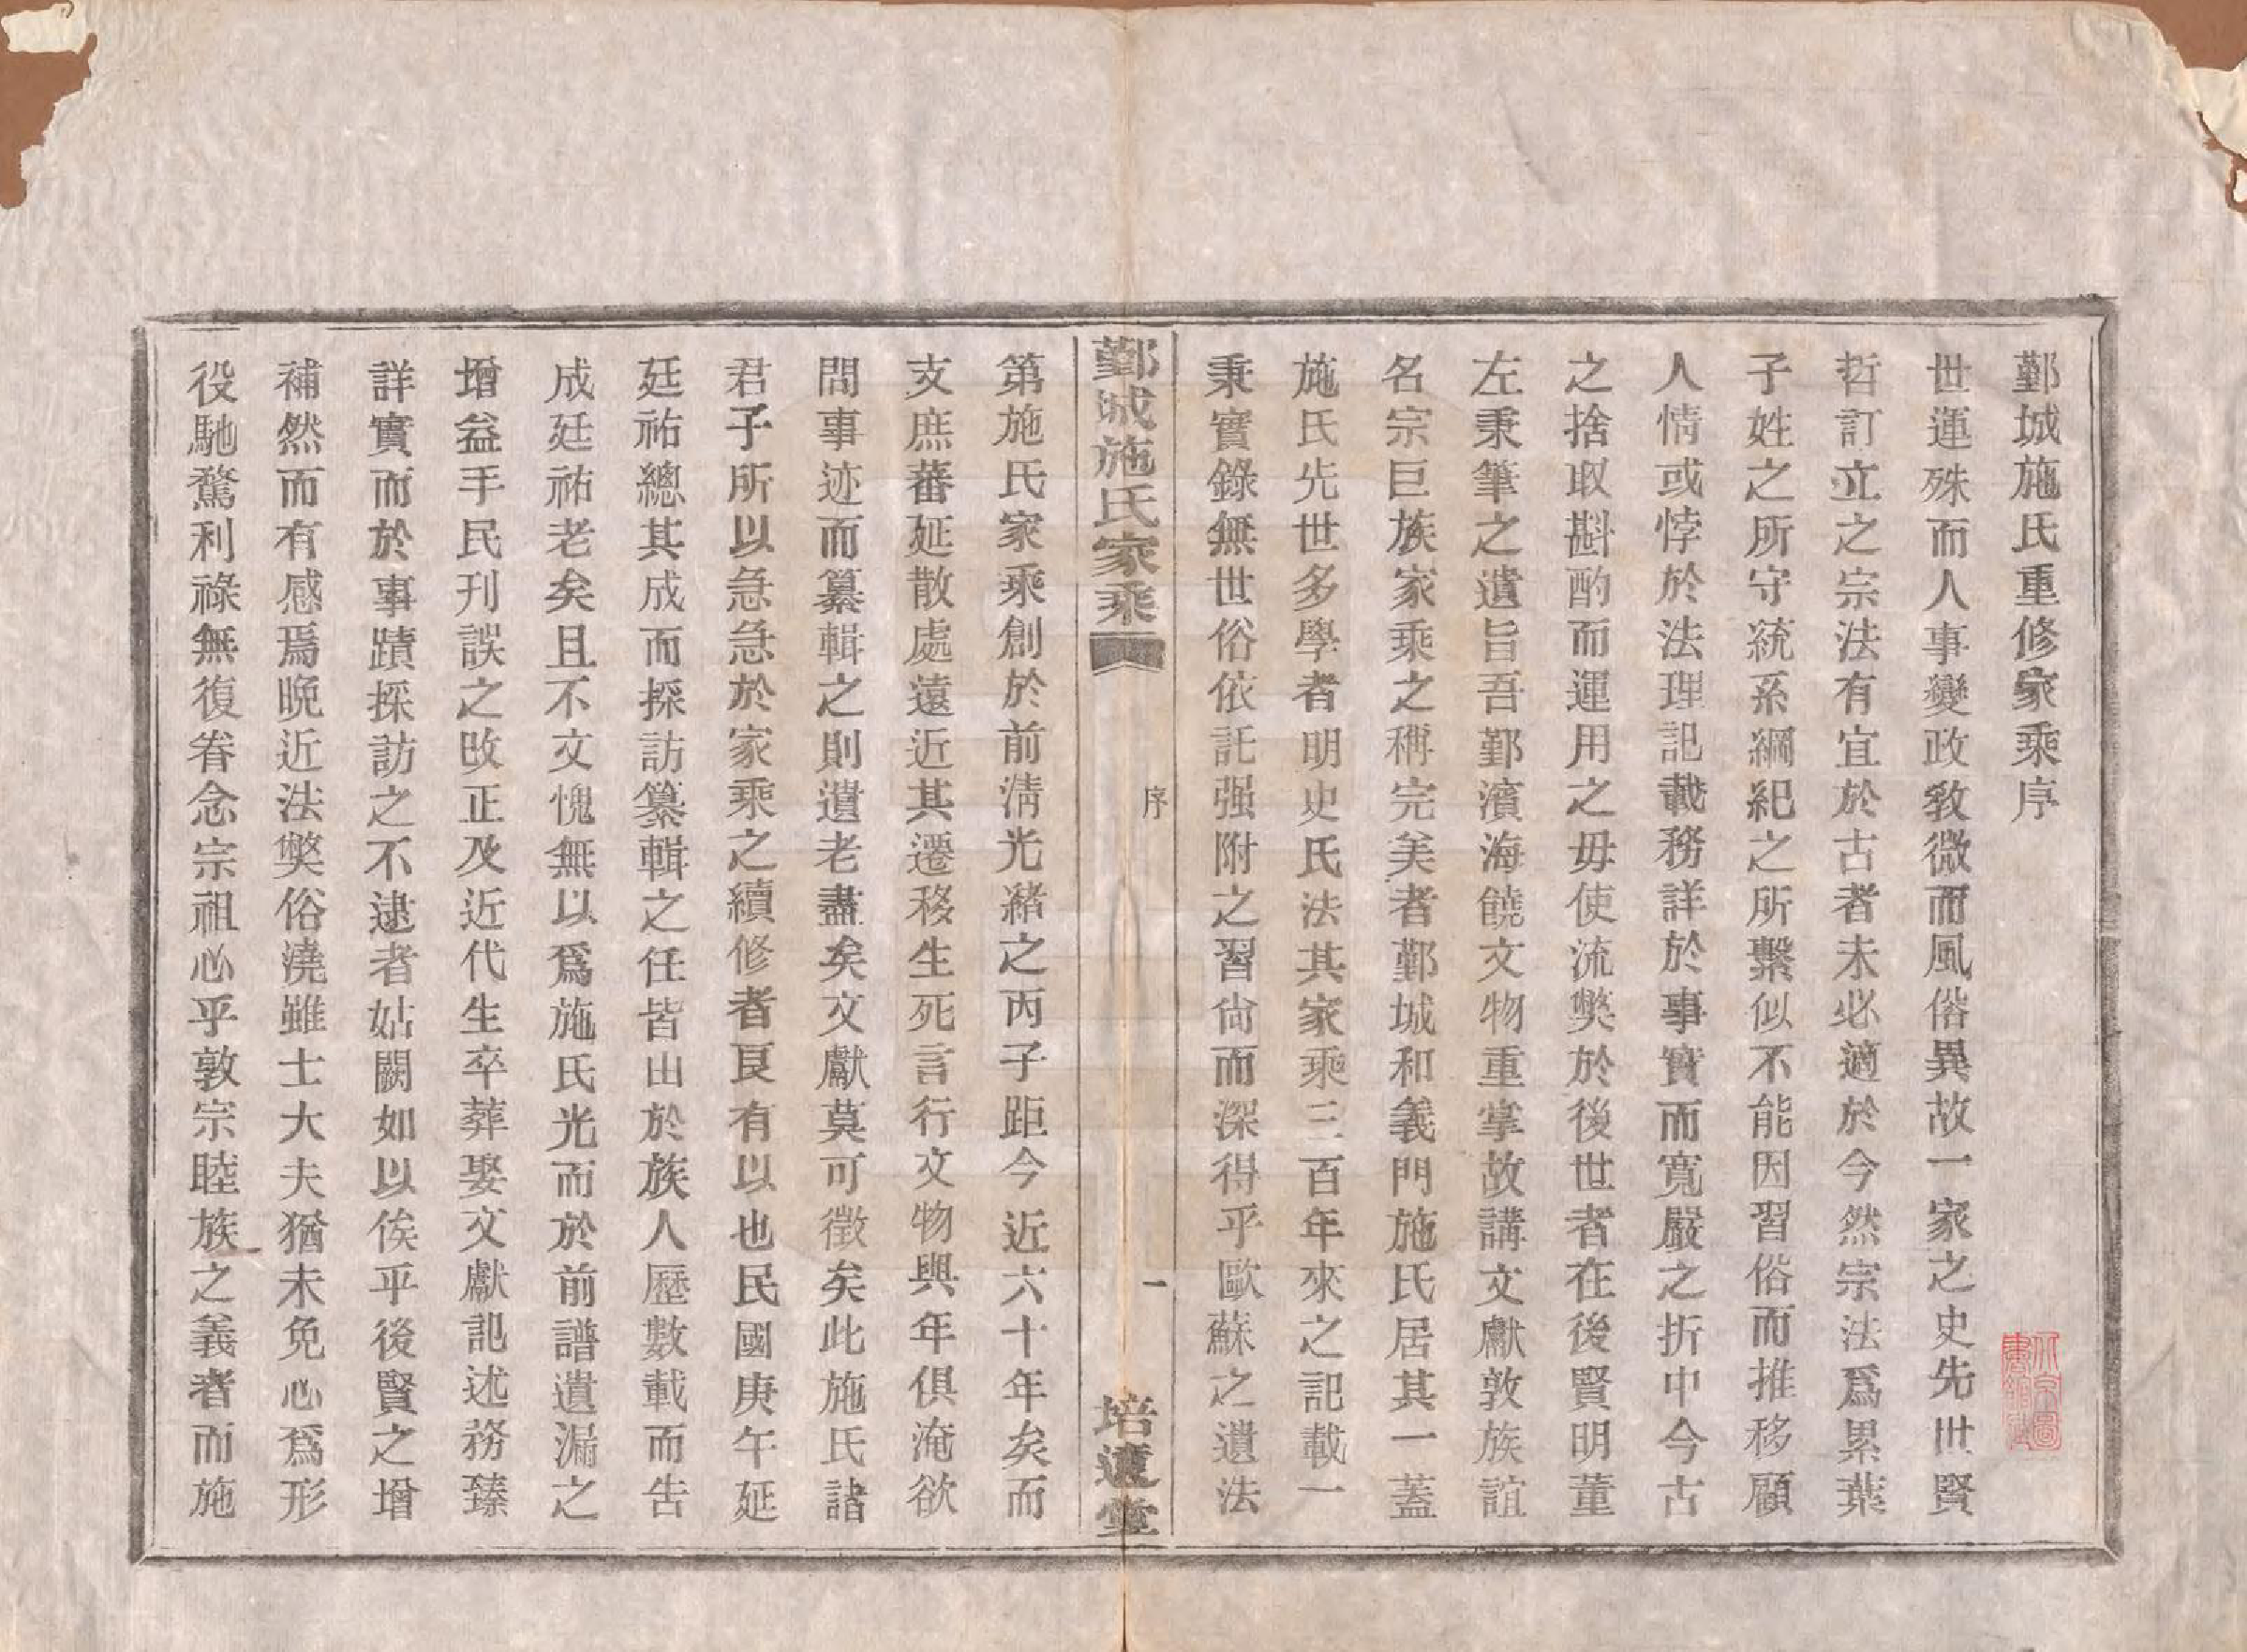 鄞城施氏重修家乘序
世運殊而人事變政敎微而風俗異故一家之史先世賢
哲訂立之宗法有宜於古者未必適於今然宗法爲累葉
子姓之所守統系綱紀之所繫似不能因習俗而推移顧
人情或悖於法理記載務詳於事實而寬嚴之折中今古
之捨取斟酌而運用之毋使流獘於後世者在後賢明董
左秉筆之遺旨吾鄞濱海饒文物重掌故講文獻敦族誼
名宗巨族家乘之稱完美者鄞城和義門施氏居其一蓋
施氏先世多學者明史氏法其家乘三百年來之記載一
秉實錄無世俗依託强附之習尙而深得乎歐蘇之遺法
鄞城施氏家乘
序
一
培遠堂
第施氏家乘創於前淸光緒之丙子距今近六十年矣而
支庶蕃延散處遠近其遷移生死言行文物與年俱淹欲
問事迹而纂輯之則遺老盡矣文獻莫可徵矣此施氏諸
君子所以急急於家乘之續修者良有以也民國庚午延
廷祐總其成而採訪纂輯之任皆由於族人歷數載而告
成廷祐老矣且不文愧無以爲施氏光而於前譜遺漏之
增益手民刊誤之攺正及近代生卒葬娶文獻記述務臻
詳實而於事蹟採訪之不逮者姑闕如以俟乎後賢之增
補然而有感焉晚近法獘俗澆雖士大夫猶未免心爲形
役馳騖利祿無復眷念宗祖心乎敦宗睦族之義者而施